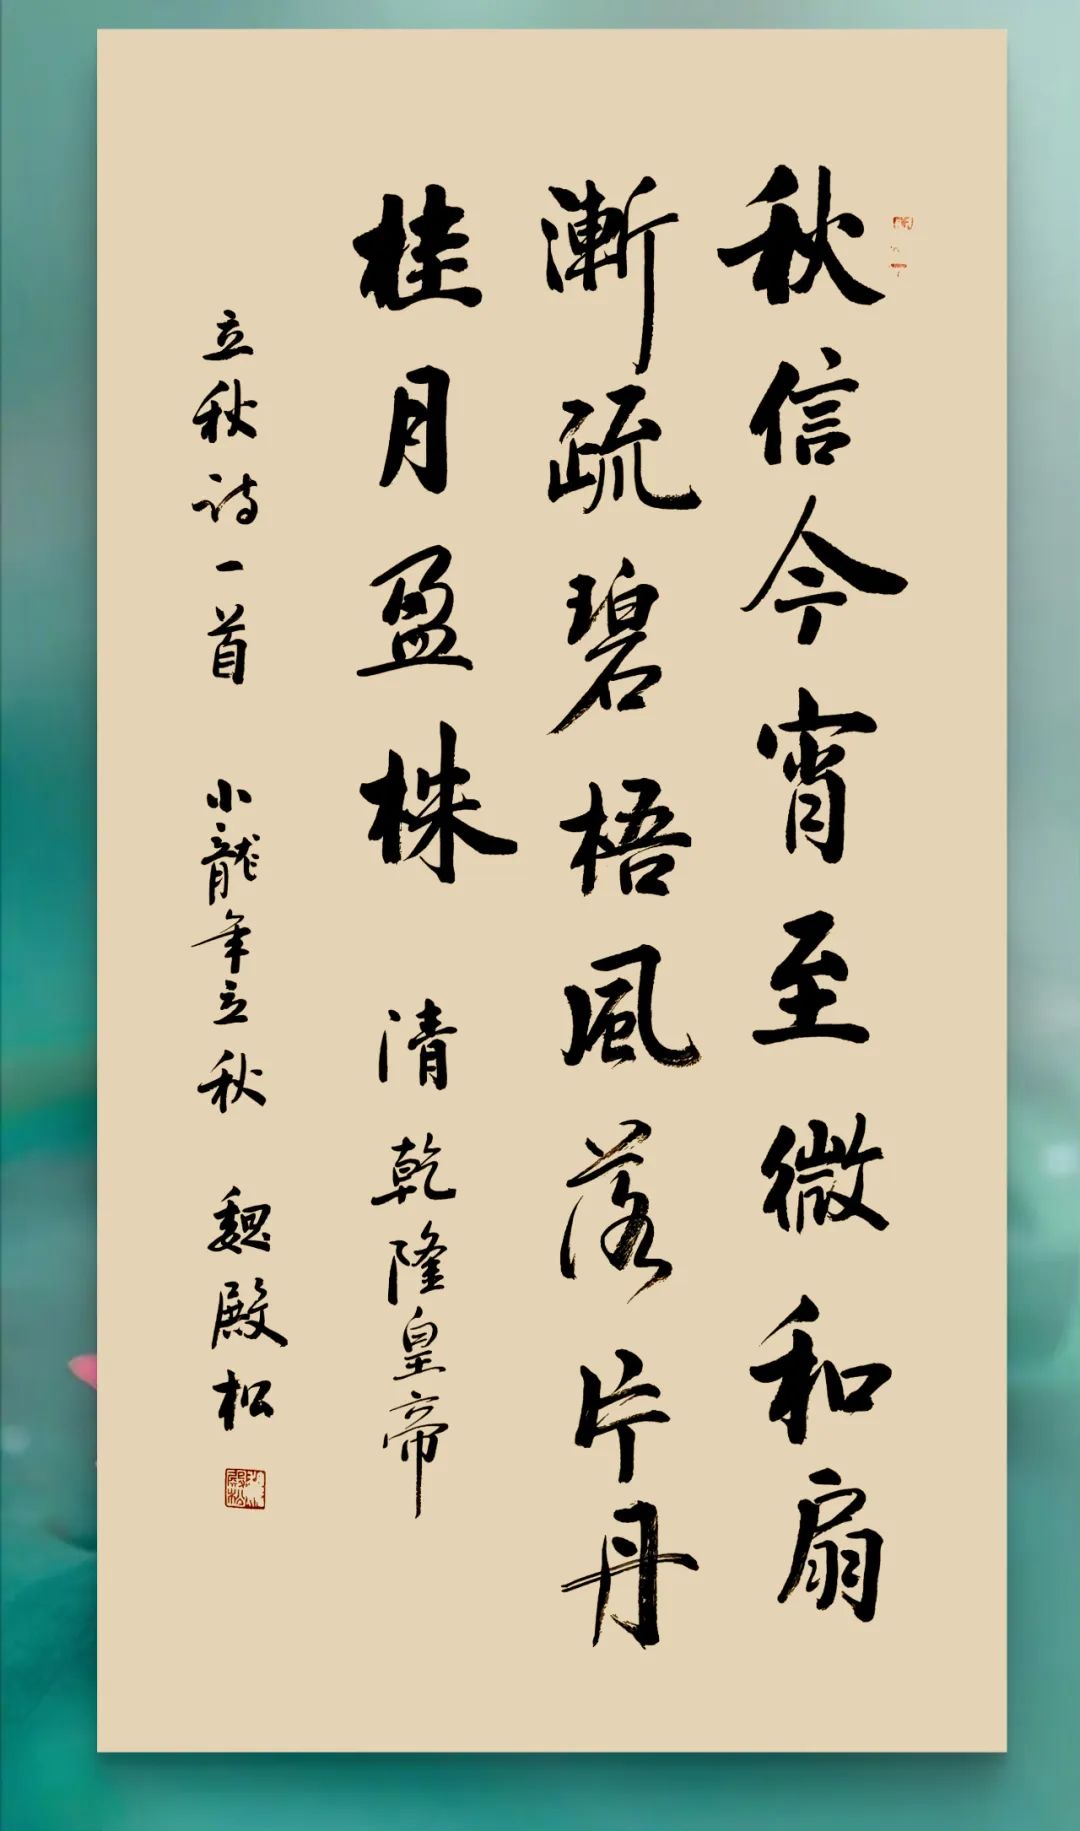 秋信今宵至微和扇
漸疏碧梧風落片丹
桂月盈株 清 乾隆皇帝
立秋诗一首 小龍年立秋 魏殿松